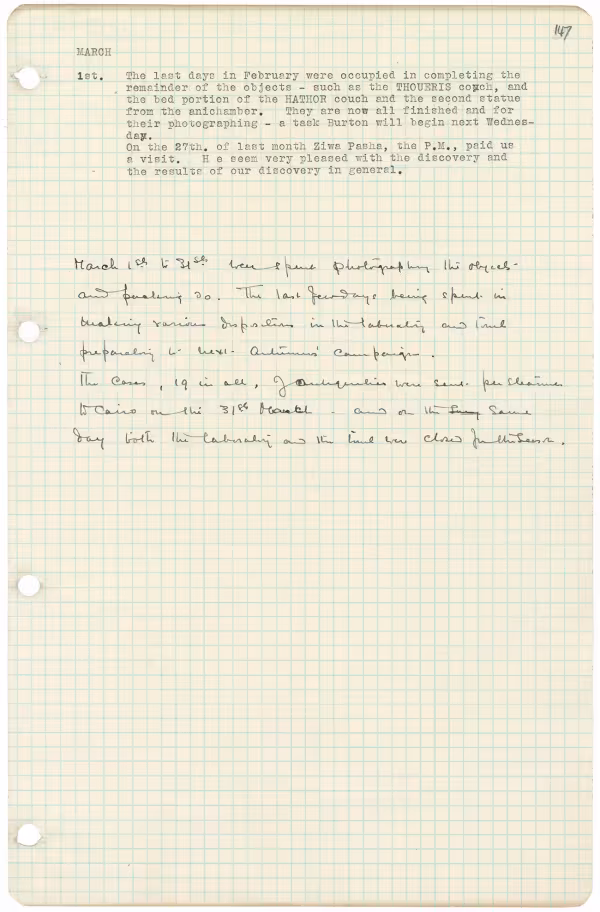 147
MARCH
1st. The last days in February were occupied in completing the
remainder of the objects - such as the THOUERIS couch, and
the bed portion of the HATHOR couch and the second statue
from the anichamber. They are now all finished and for
their photographing - a task Burton will begin next Wednes-
day.
On the 27th. of last month Ziwa Pasha, the P.M., paid us
a visit. H e seem very pleased with the discovery and
the results of our discovery in general.
March 1st to 31st were spent photographing the objects
and packing do. The last few days being spent in
making various dispositions in the laboratory and Tomb
preparatory to next Autumns' campaign.
The Cases, 19 in all, of antiquities were sent per steamer
to Cairo on the 31st March - and on the same
day both the laboratory and the tomb were closed for the season.